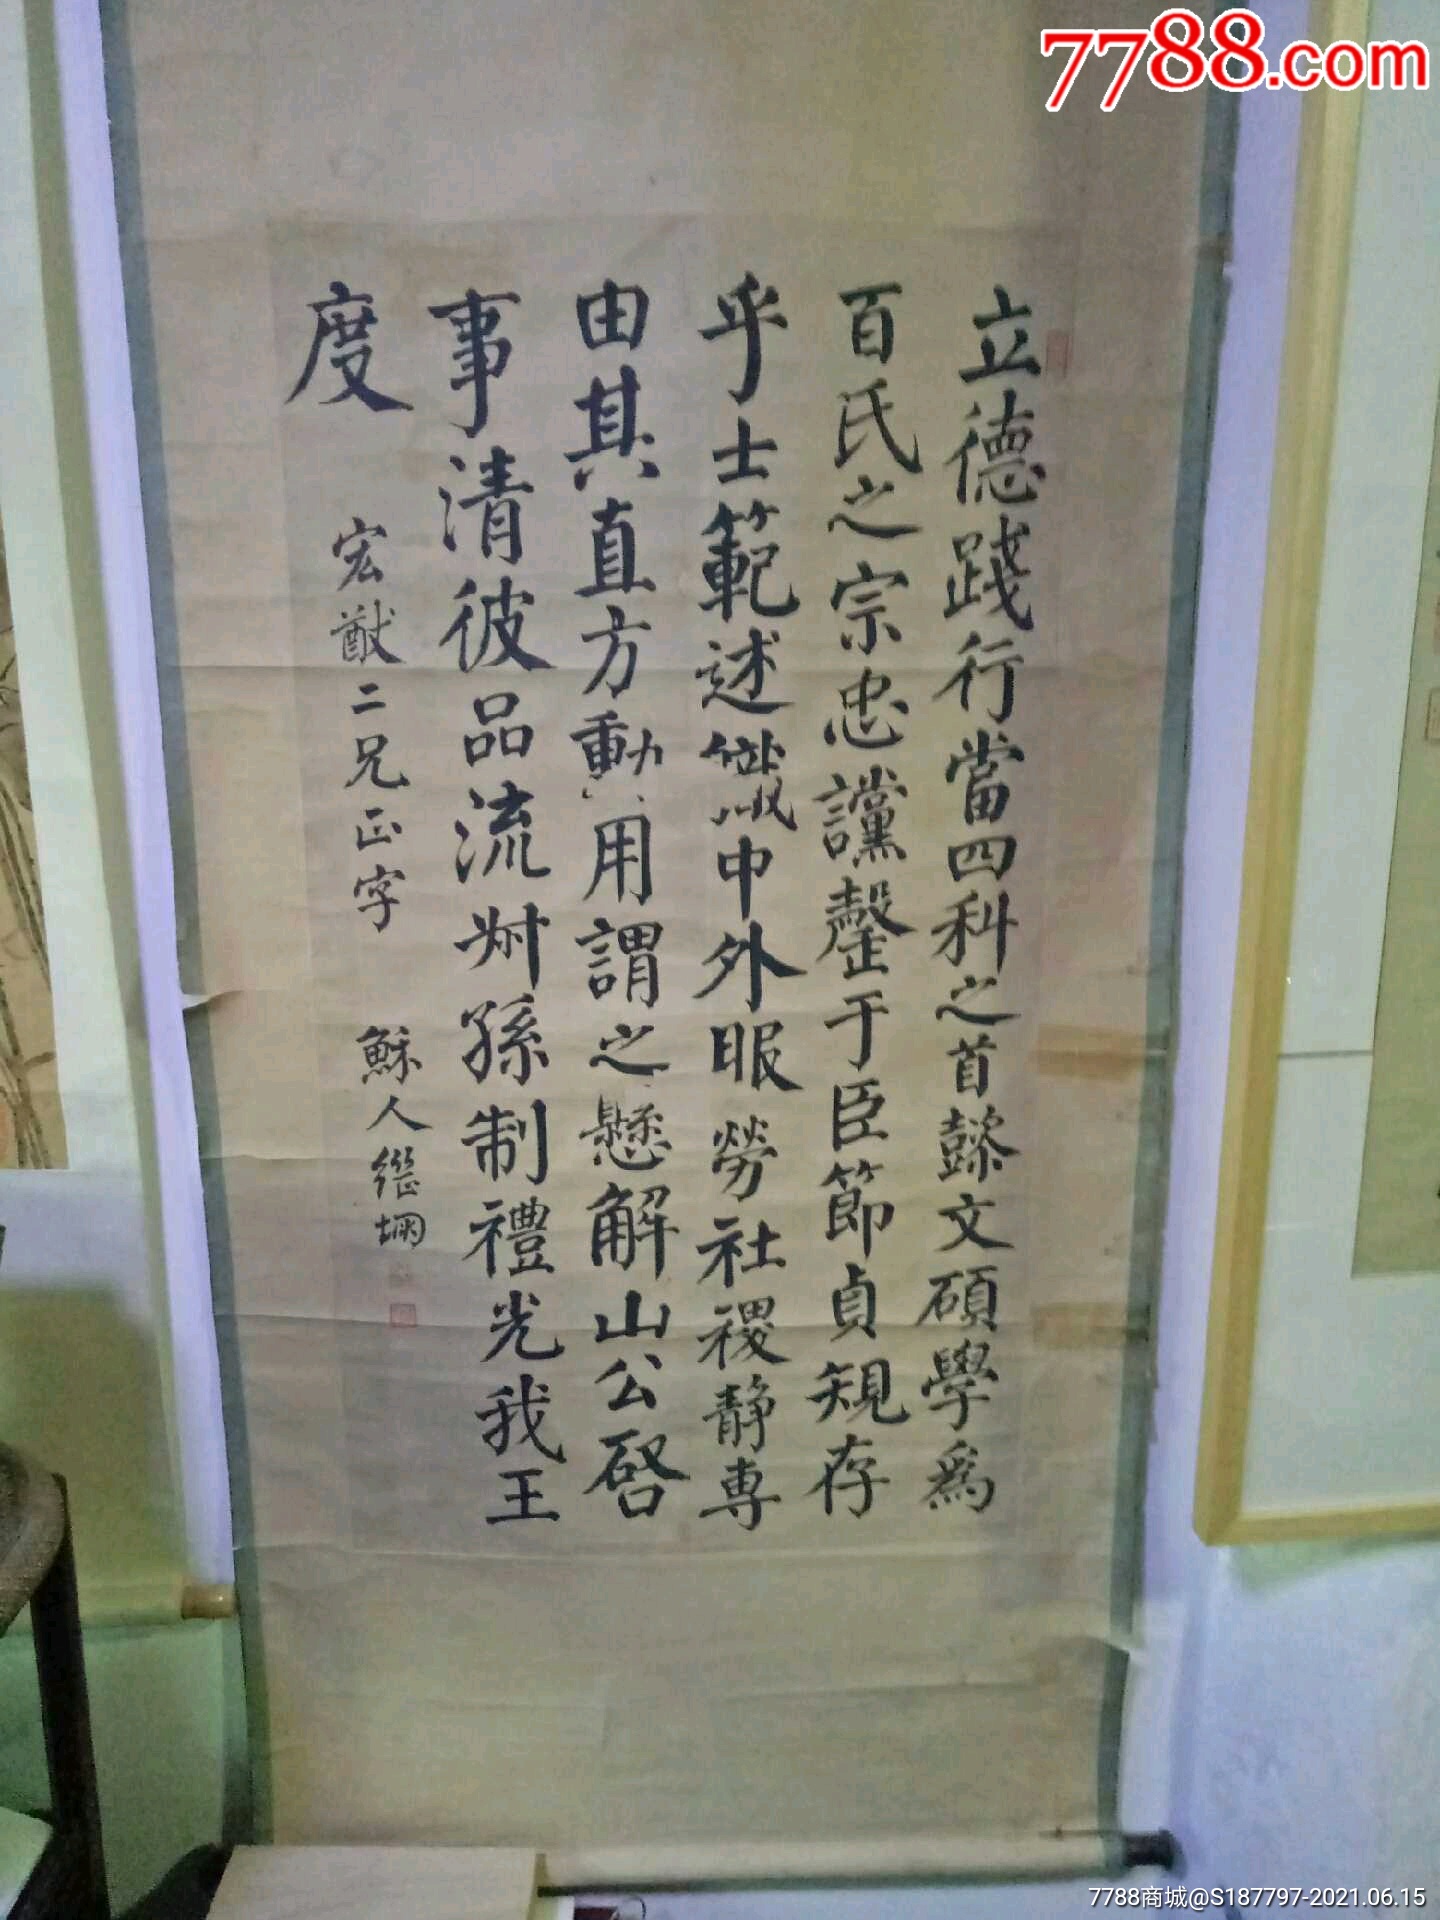 7788.com
立德踐行當四科之首懿文碩學爲
百氏之宗忠讜罄于臣節貞規存
乎士範述職中外服勞社稷静專
由其直方動用謂之懸解山公啓
事清彼品流叔孫制禮光我王
度
宏猷二兄正字
穌人繼堋
7788商城@S187797-2021.06.15